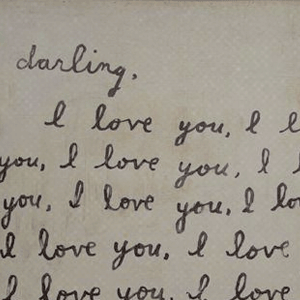 darling,
I love you, I l
you, I love you, I l
you, I love you, I lo
I love you, I love
I love you, I love